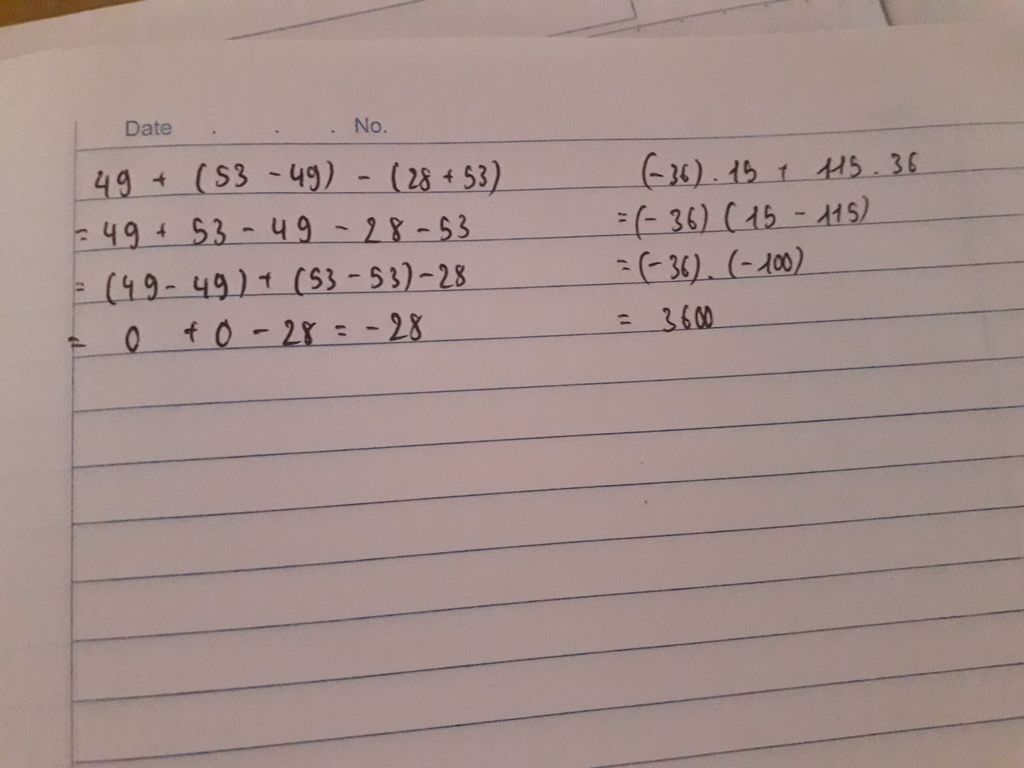 Date . . . No.
49 + (53 - 49) - (28 + 53)
= 49 + 53 - 49 - 28 - 53
= (49 - 49) + (53 - 53) - 28
= 0 + 0 - 28 = - 28
(-36) . 15 + 115 . 36
= (- 36) (15 - 115)
= (-36) . (-100)
= 3600